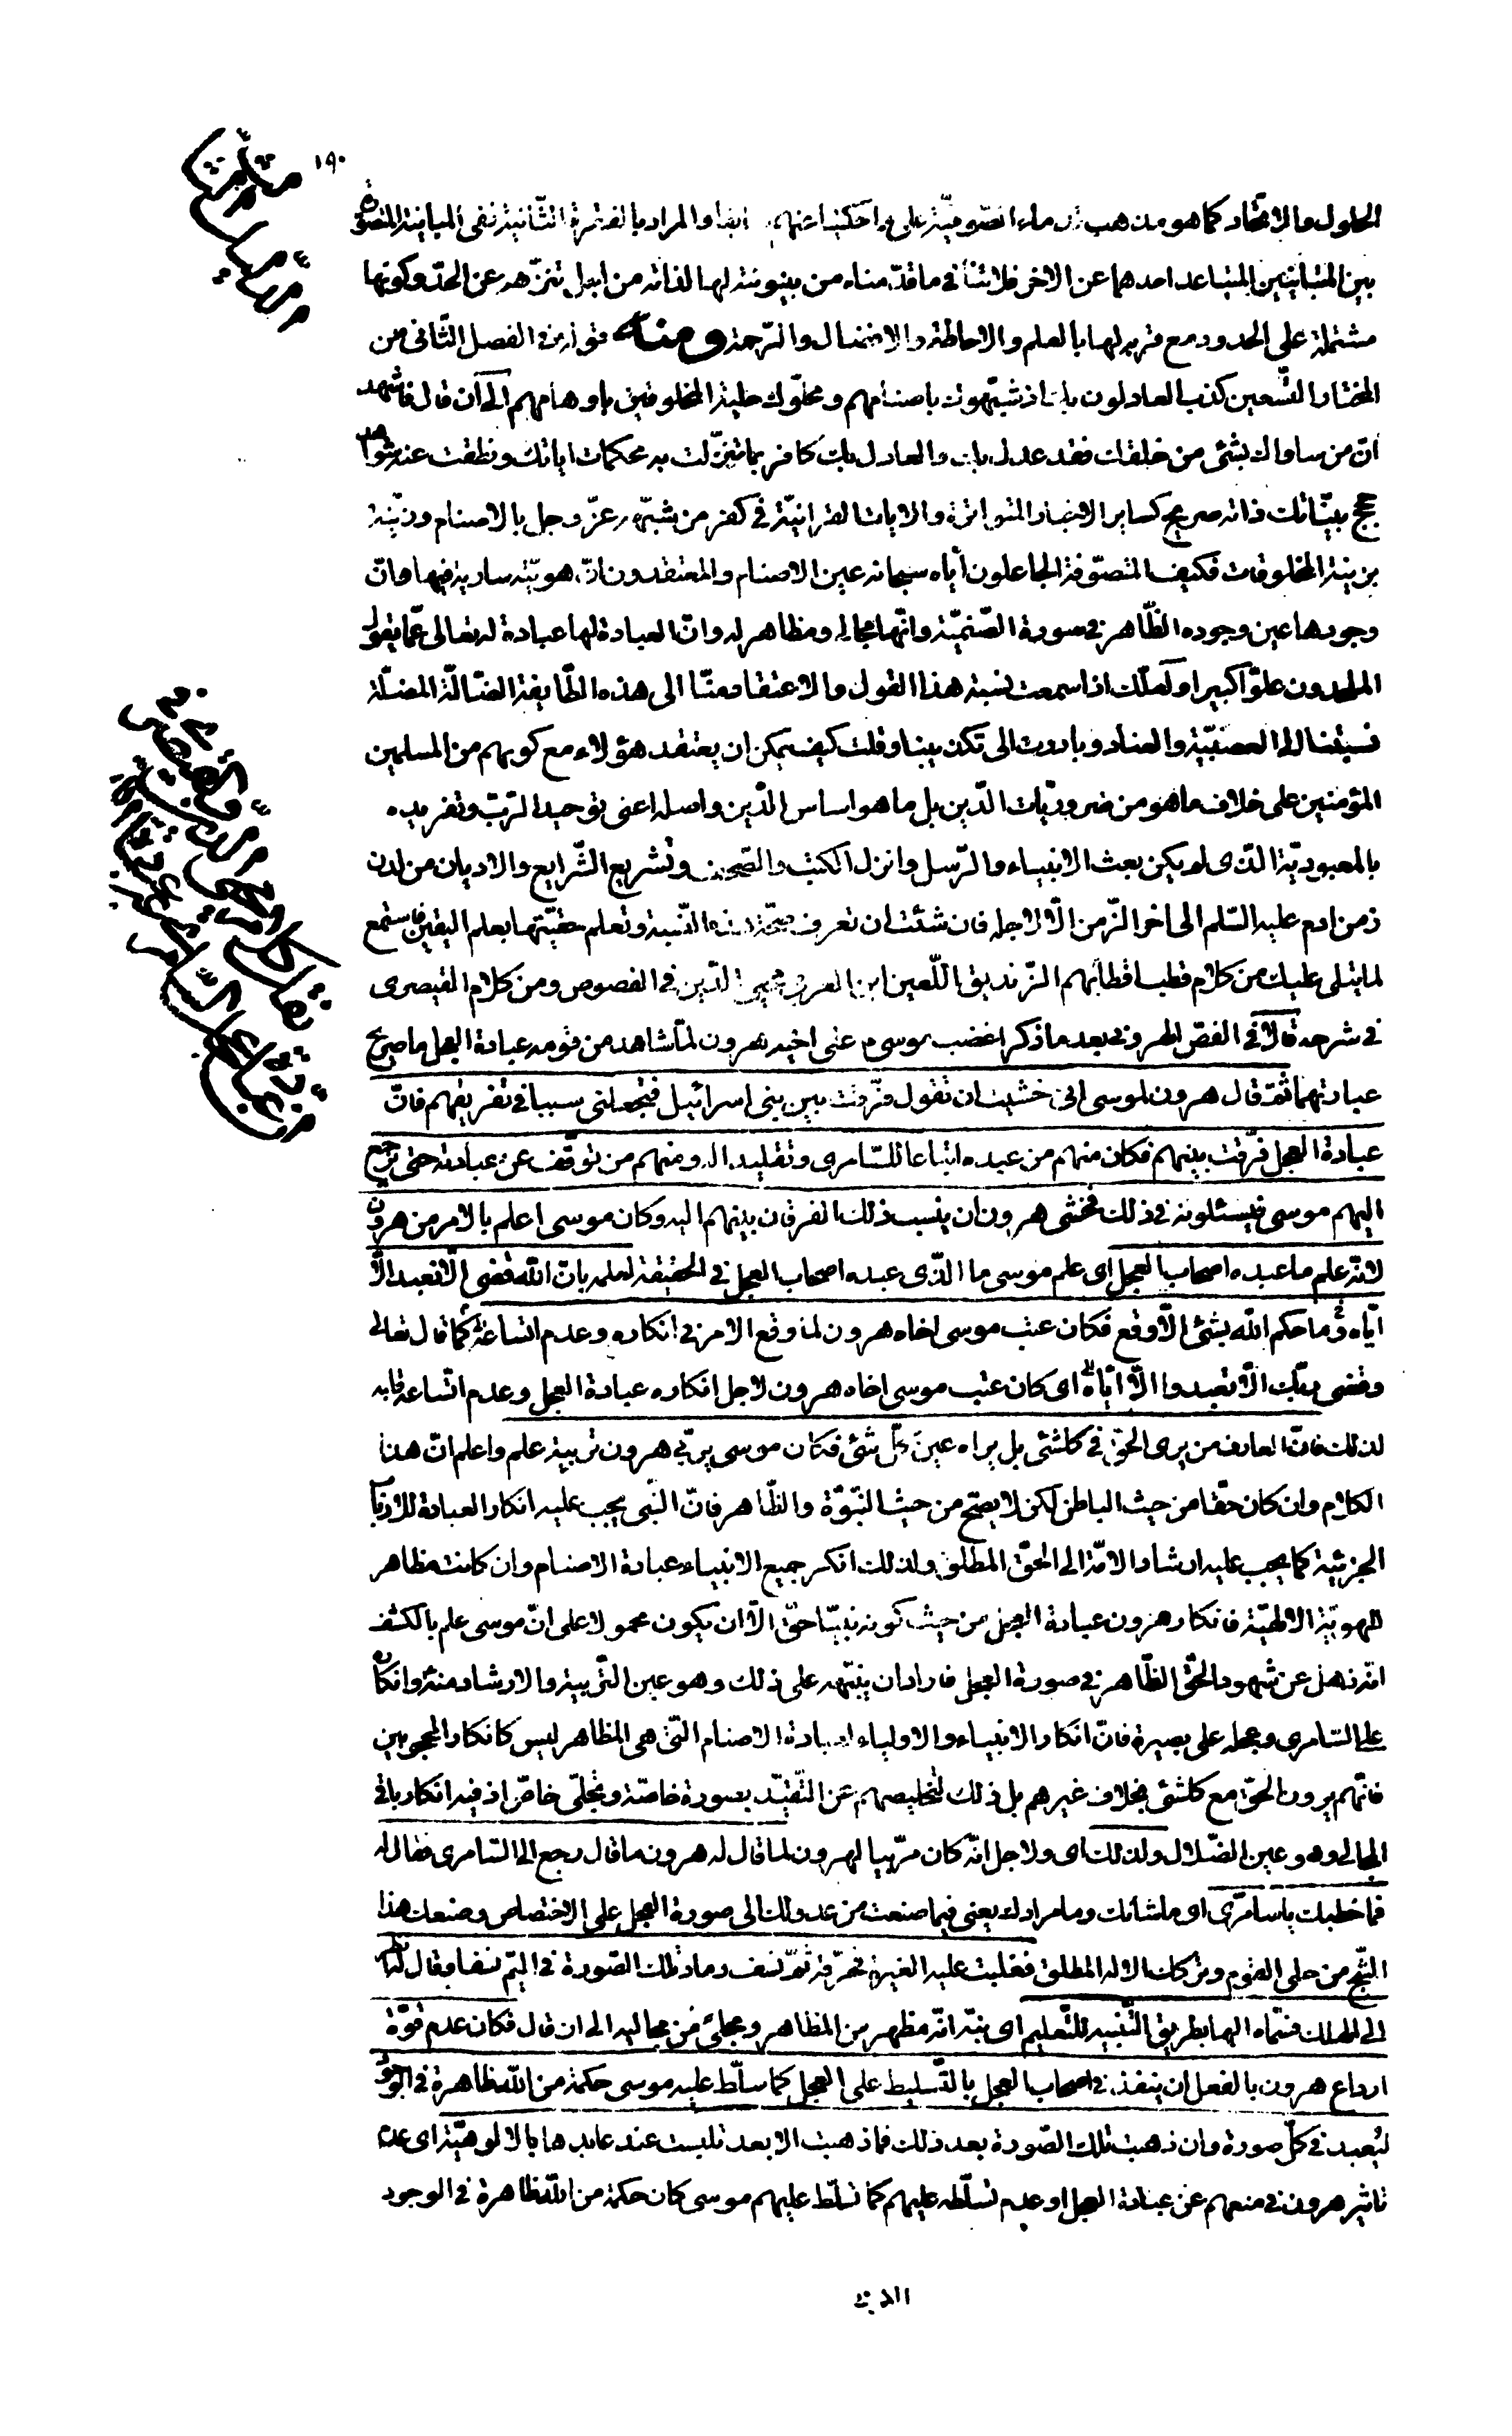 ١٩٠
الحلول والاتحاد كما هو مذهب الصوفية على ما حكينا عنهم ايضا والمراد بالفقرة الثّانية نفى المباينة المتصوّرة
بين المتباينين المتباعد احدهما عن الاخر فلا تنا فى ما قدّمناه من بينونته لها لذاته من اجل تنزّهه عن الحدّ وكونها
مشتملة على الحدود مع قربه لها بالعلم والاحاطة والافضال والرّحمة ومنها قوله فى الفصل الثّانى من
المختار التّسعين كذب العادلون بك اذ شبّهوك باصنامهم ونحلّوك حلية المخلوقين باوهامهم الى ان قال فاشهد
انّ من ساواك بشئ من خلقك فقد عدل بك والعادل بك كافر بما تنزّلت به محكمات اياتك ونطقت عنه شواهد
حجج بيّناتك فانّه صريح كساير الاخبار المتواترة والايات القرانيّة فى كفر من شبّهه عزّ وجل بالاصنام وزيّنه
بزينة المخلوقات فكيف المتصوّفة الجاعلون ايّاه سبحانه عين الاصنام والمعتقدون انّ هويّته سارية فيها وانّ
وجودها عين وجوده الظّاهر فى صورة الصّنميّة وانّها مجالى ومظاهر له وانّ العبادة لها عبادة له تعالى عمّا يقول
الملحدون علوّا كبيرا ولعلّك اذا سمعت نسبة هذا القول والاعتقاد منّا الى هذه الطّايفة الضّالّة المضلّة
نسبتنا الى العصبيّة والعناد وبادرت الى تكذيبنا وقلت كيف يمكن ان يعتقد هؤلاء مع كونهم من المسلمين
المؤمنين على خلاف ما هو من ضروريّات الدّين بل ما هو اساس الدّين واصله اعنى توحيد الرّب وتفريده
بالمعبوديّة الّذى لم يكن بعث الانبياء والرّسل وانزل الكتب والصّحف وتشريع الشّرايع والاديان من لدن
زمن ادم عليه السّلم الى اخر الزّمن الّا لاجله فان شئت ان تعرف صحّة هذه النّسبة وتعلم حقيّتها بعلم اليقين فاستمع
لما يتلى عليك من كلام قطب اقطابهم الزّنديق اللّعين ابن العربى محيى الدّين فى الفصوص ومن كلام القيصرى
فى شرحه قالا فى الفصّ الهرونى بعد ما ذكرا غضب موسى م على اخيه هرون لمّا شاهد من قومه عبادة العجل ما صريح
عبارتهما ثمّ قال هرون لموسى انى خشيت ان تقول فرّقت بين بنى اسرائيل فتجعلنى سببا فى تفريقهم فانّ
عبادة العجل فرّقت بينهم فكان منهم من عبده اتباعا للسّامرى وتقليدا له ومنهم من توقّف عن عبادته حتى يرجع
اليهم موسى فيسئلونه فى ذلك فخشى هرون ان ينسب ذلك الفرقان بينهم اليه وكان موسى اعلم بالامر من هرون
لانّه علم ما عبده اصحاب العجل اى علم موسى ما الّذى عبده اصحاب العجل فى الحقيقة لعلمه بانّ اللّه قضى الّا نعبد الّا
ايّاه وما حكم اللّه بشئ الّا وقع فكان عتب موسى اخاه هرون لما وقع الامر فى انكاره وعدم اتساعه كما قال تعالى
وقضى ربّك الّا تعبدوا الّا ايّاه اى كان عتب موسى اخاه هرون لاجل انكاره عبادة العجل وعدم اتساع قلبه
لذلك فانّ العارف من يرى الحقّ فى كلّشئ بل يراه عين كلّ شئ فكان موسى يربّى هرون تربية علم واعلم انّ هذا
الكلام وان كان حقّا من حيث الباطن لكن لا يصحّ من حيث النبوّة والظّاهر فانّ النّبى يجب عليه انكار العبادة للارباب
الجزئية كما يجب عليه ارشاد الامّة الى الحقّ المطلق ولذلك انكر جميع الانبياء عبادة الاصنام وان كانت مظاهر
للهويّة الالهيّة فانكار هرون عبادة العجل من حيث كونه نبيّا حقّ الّا ان يكون محمولا على انّ موسى علم بالكشف
انّه ذهل عن شهود الحقّ الظّاهر فى صورة العجل فاراد ان ينبّهه على ذلك وهو عين التّربية والارشاد منه وانكاره
على السّامرى وعجله على بصيرة فانّ انكار الانبياء والاولياء لعبادة الاصنام الّتى هى المظاهر ليس كانكار المحجوبين
فانّهم يرون الحقّ مع كلّشئ بخلاف غيرهم بل ذلك لتخليصهم عن التّقيّد بصورة خاصّة وتجلّى خاصّ اذ فيه انكار باقى
المجالى وهو عين الضّلال ولذلك اى ولاجل انّه كان مربّيا لهرون لما قال له هرون ما قال رجع الى السّامرى فقال له
فما خطبك يا سامرىّ اى ما شأنك وما مرادك يعنى فيما صنعت من عدولك الى صورة العجل على الاختصاص وصنعك هذا
الشّبح من حلى القوم وتركك الاله المطلق فغلبت عليه الغيرة فحرّقه ثمّ نسف رماد تلك الصّورة فى اليمّ نسفا وقال له انظر
الى الهك فسمّاه الها بطريق التّنبيه للتّعليم اى ينبّه انّه مظهر من المظاهر ومجلىً من مجاليه الى ان قال فكان عدم قوّة
ارداع هرون بالفعل ان ينفذ فى اصحاب العجل بالتّسليط على العجل كما سلّط عليه موسى حكمة من اللّه ظاهرة فى الوجود
ليُعبد فى كلّ صورة وان ذهبت تلك الصّورة بعد ذلك فما ذهبت الا بعد تلبست عند عابدها بالالوهيّة اى عدم
تاثير هرون فى منعهم عن عبادة العجل او عدم تسلّطه عليهم كما تسلّط عليهم موسى كان حكمة من اللّه ظاهرة فى الوجود